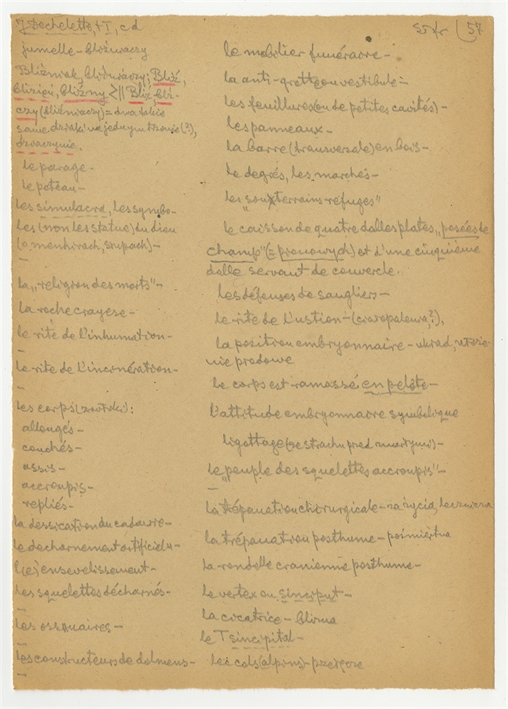 J. Dechelette, t. I, c.d
57
jumelle - bliźniaczy
Bliźniak, bliźniaczy; Bliź,
Blizigi, Bliźny || Bliz, bli-
czy (bliźniaczy) = dwa dzbie
same na jednym (?),
dwaczynia.
le parage -
le poteau -
les simulacra, les symbo-
les (non les statue) du dieu
(o menhirach, słupach) -
la "religion des morts" -
la roche crayese -
le rite de l'inhumation -
le rite de l'incinération -
les corps (zwłoki):
allongés -
couchés -
assis -
accroupis -
repliés -
la dessication du cadavre -
le decharnement artificiel -
l'(e) ensevelissement -
les squelettes décharnés -
les ossuaires -
les constructeurs de dolmens -
le mobilier funéraire -
la anti-grotte ou vestibule -
les feuillures (ou de petites cavités) -
les panneaux -
la barre (transversale) en bois -
le degrés, les marchés -
les "souterrains-refuges"
le caisson de quatre dalles plates, "posées de
champ" (= pionowych) et d'une cinquième
dalle servant de couvercle.
les défenses de sanglier -
le rite de l'ustion - (ciałopalenia?),
la position embryonnaire - układ,
le corps est ramassé en pelote -
l'attitude embryonnaire symbolique
ligottage (ze strachu przed zmarłymi) -
le "peuple des squelettes accroupis" -
la trépanation chirurgicale - za życia, lecznicza
la trépanation posthume - pośmiertna
la rondelle cranienne posthume -
le vertex ou sinciput -
la cicatrice - blizna
le T sincipital -
les cols (alpins) - przełęcze